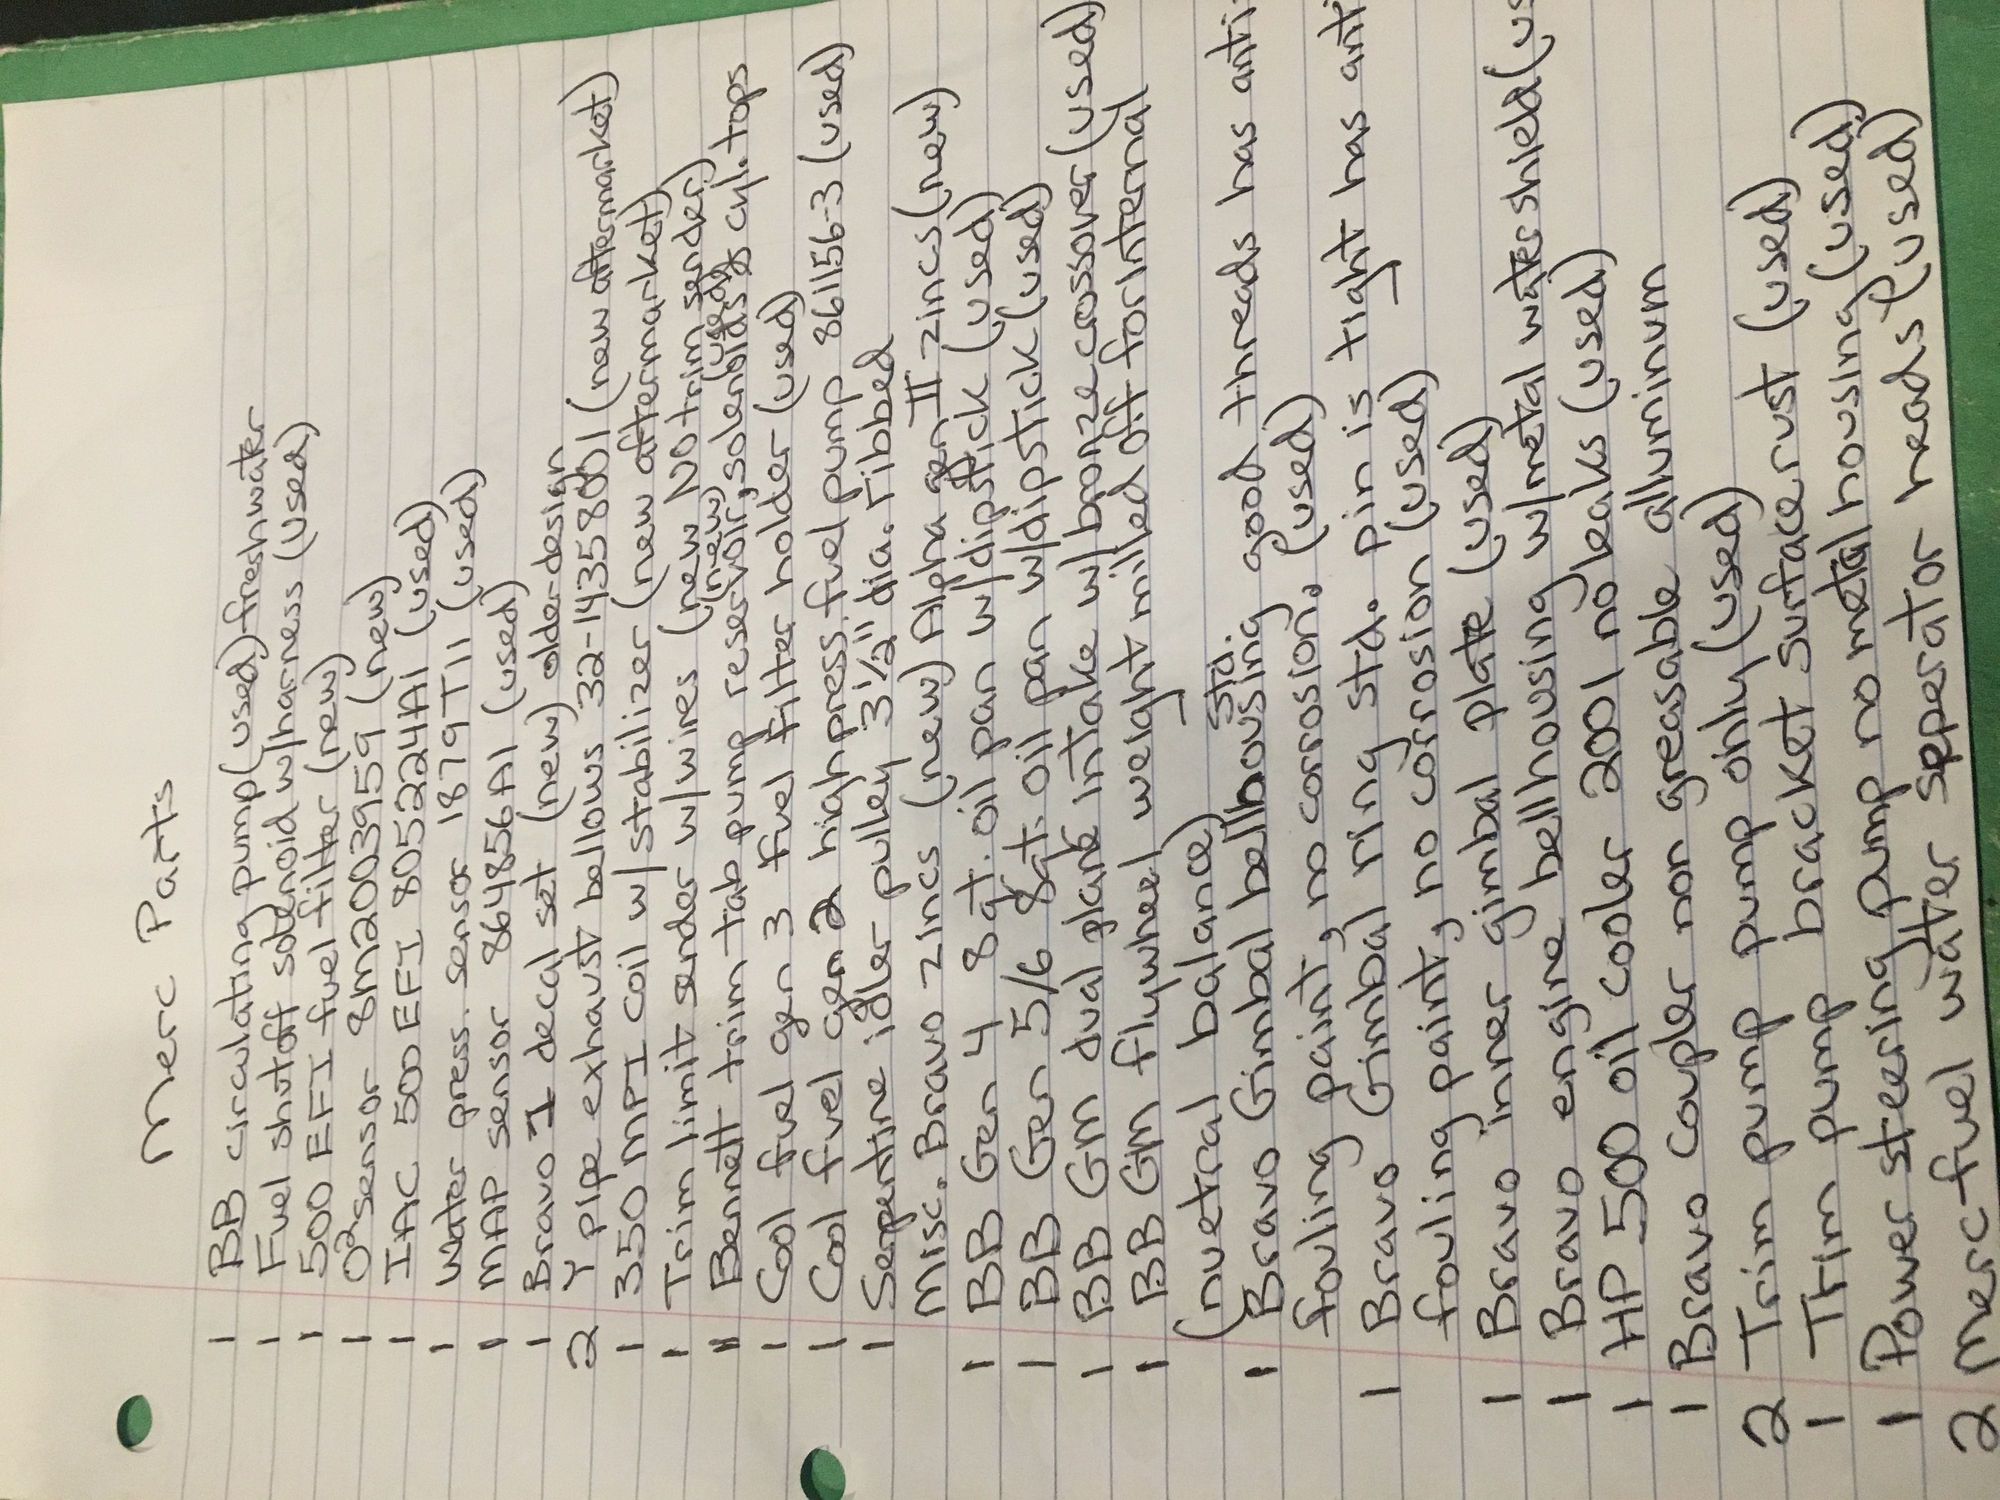 Merc Parts
1 BB circulating pump (used) freshwater
1 Fuel shutoff solenoid w/harness (used)
1 500 EFI fuel filter (new)
1 O2 sensor 8M2003959 (new)
1 IAC 500 EFI 805224A1 (used)
1 water press. sensor 1879T11 (used)
1 MAP sensor 864856A1 (used)
1 Bravo I decal set (new) older design
2 Y pipe exhaust bellows 32-14358001 (new aftermarket)
1 350 MPI coil w/stabilizer (new aftermarket)
1 Trim limit sender w/wires (new NO trim sender)
11 Bennett trim tab pump reservoir (new), solenoids (used) & cyl. tops
1 Cool fuel gen 3 fuel filter holder (used)
1 Cool fuel gen 2 high press. fuel pump 861156-3 (used)
1 Serpentine idler pulley 3 1/2" dia. ribbed
Misc. Bravo zincs (new) Alpha gen II zincs (new)
1 BB Gen 4 8 qt. oil pan w/dipstick (used)
1 BB Gen 5/6 8qt. oil pan w/dipstick (used)
1 BB GM dual plane intake w/bronze crossover (used)
1 BB GM flywheel weight milled off for internal
(nuetral balance)
1 Bravo Gimbal bellhousing std. good threads has anti-
fouling paint, no corrosion. (used)
1 Bravo Gimbal ring std. pin is tight has anti
fouling paint, no corrosion (used)
1 Bravo inner gimbal plate (used)
1 Bravo engine bellhousing w/metal water shield (us
1 HP 500 oil cooler 2001 no leaks (used)
1 Bravo coupler non greasable alluminum
2 Trim pump pump only (used)
1 Trim pump bracket surface rust (used)
1 Power steering pump no metal housing (used)
2 Merc fuel water seperator heads (used)